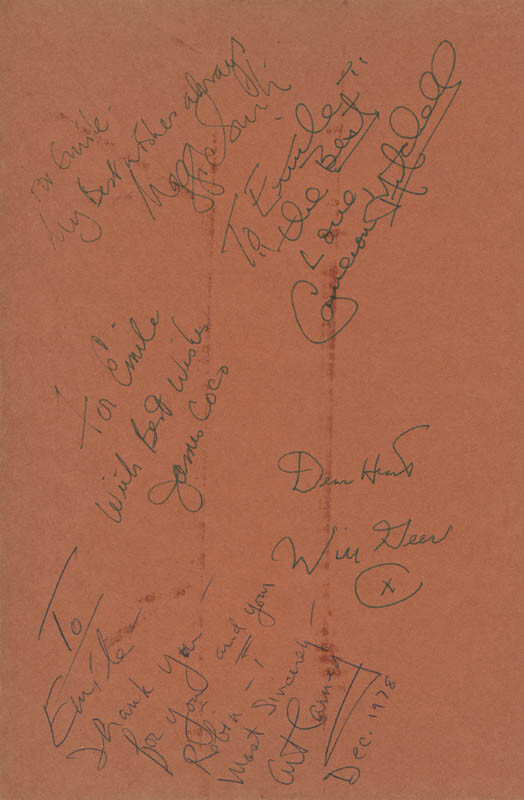 For Emile -
My Best wishes always
Maggie Smith
To Emile -
the Best
Love
Cameron Mitchell
For Emile
With Best Wishes
James Coco
Dear Heart
Will Geer
x
To
Emile -
Thank you -
for you and your
Robin - !
Most Sincerely -
Art Carney
Dec. 1978